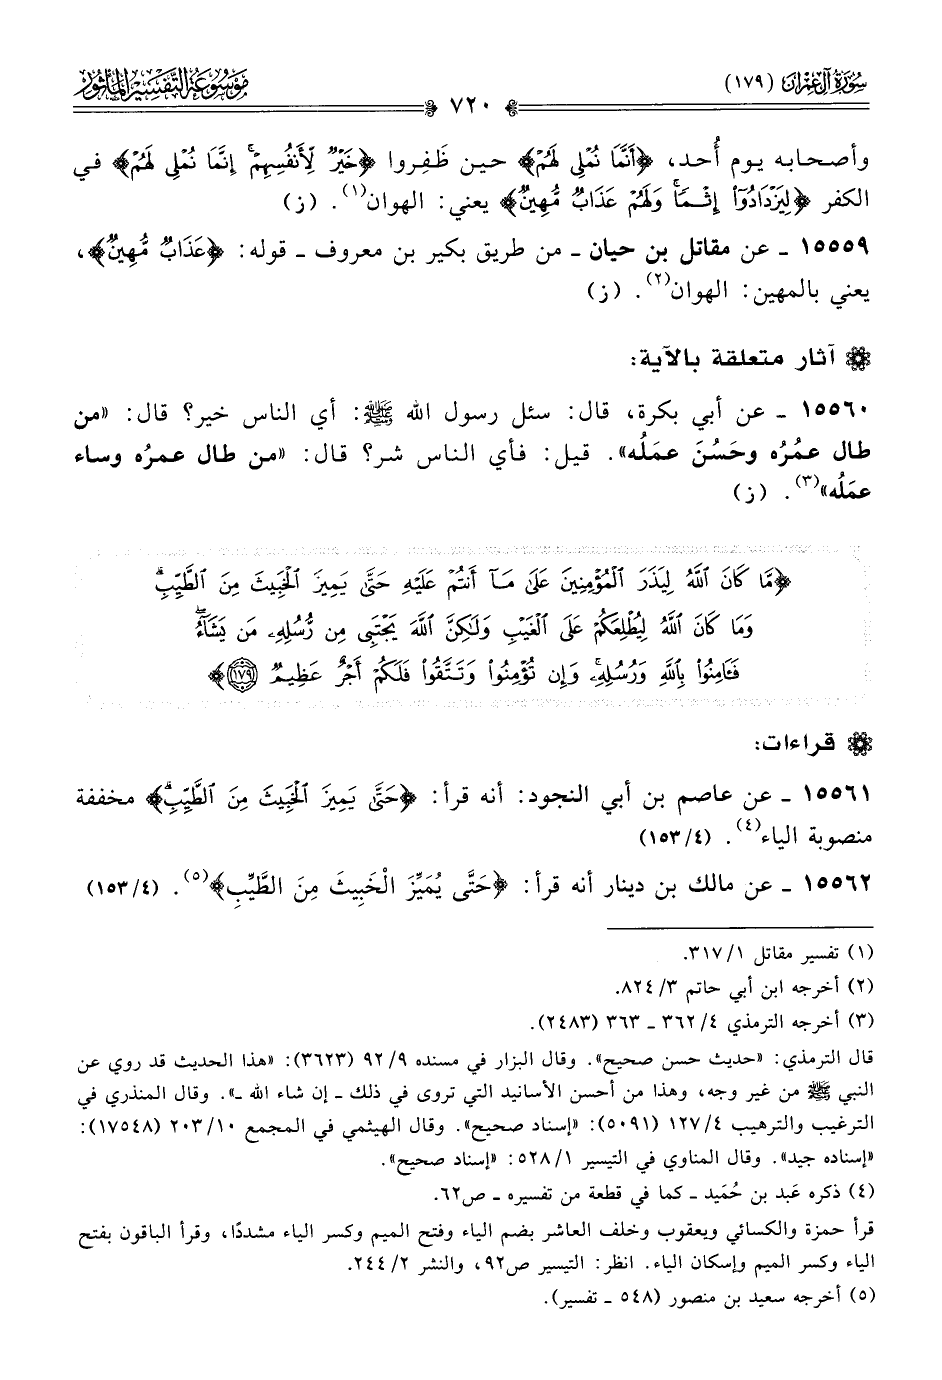 سُورَةُ آلِ عِمْرَان (١٧٩)
٧٢٠
مَوْسُوعَةُ التَّفْسِيرِ المَأْثُور
وأصحابه يوم أُحد، ﴿أَنَّمَا نُمْلِي لَهُمْ﴾ حين ظَفِروا ﴿خَيْرٌ لِّأَنفُسِهِمْ ۚ إِنَّمَا نُمْلِي لَهُمْ﴾ في
الكفر ﴿لِيَزْدَادُوٓا۟ إِثْمًا ۚ وَلَهُمْ عَذَابٌ مُّهِينٌ﴾ يعني: الهوان(١). (ز)
١٥٥٥٩ ـ عن مقاتل بن حيان ـ من طريق بكير بن معروف ـ قوله: ﴿عَذَابٌ مُّهِينٌ﴾،
يعني بالمهين: الهوان(٢). (ز)
آثار متعلقة بالآية:
١٥٥٦٠ ـ عن أبي بكرة، قال: سئل رسول الله ﷺ: أي الناس خير؟ قال: «من
طال عمُرُه وحَسُنَ عمَلُه». قيل: فأي الناس شر؟ قال: «من طال عمرُه وساء
عمَلُه»(٣). (ز)
﴿مَّا كَانَ ٱللَّهُ لِيَذَرَ ٱلْمُؤْمِنِينَ عَلَىٰ مَآ أَنتُمْ عَلَيْهِ حَتَّىٰ يَمِيزَ ٱلْخَبِيثَ مِنَ ٱلطَّيِّبِ ۗ
وَمَا كَانَ ٱللَّهُ لِيُطْلِعَكُمْ عَلَى ٱلْغَيْبِ وَلَٰكِنَّ ٱللَّهَ يَجْتَبِى مِن رُّسُلِهِۦ مَن يَشَآءُ ۖ
فَـَٔامِنُوا۟ بِٱللَّهِ وَرُسُلِهِۦ ۚ وَإِن تُؤْمِنُوا۟ وَتَتَّقُوا۟ فَلَكُمْ أَجْرٌ عَظِيمٌ ١٧٩﴾
قراءات:
١٥٥٦١ ـ عن عاصم بن أبي النجود: أنه قرأ: ﴿حَتَّىٰ يَمِيزَ ٱلْخَبِيثَ مِنَ ٱلطَّيِّبِ ۗ﴾ مخففة
منصوبة الياء(٤). (١٥٣/٤)
١٥٥٦٢ ـ عن مالك بن دينار أنه قرأ: ﴿حَتَّى يُمَيِّزَ الْخَبِيثَ مِنَ الطَّيِّبِ﴾(٥). (١٥٣/٤)
(١) تفسير مقاتل ٣١٧/١.
(٢) أخرجه ابن أبي حاتم ٨٢٤/٣.
(٣) أخرجه الترمذي ٣٦٢/٤ ـ ٣٦٣ (٢٤٨٣).
قال الترمذي: «حديث حسن صحيح». وقال البزار في مسنده ٩٢/٩ (٣٦٢٣): «هذا الحديث قد روي عن
النبي ﷺ من غير وجه، وهذا من أحسن الأسانيد التي تروى في ذلك ـ إن شاء الله ـ». وقال المنذري في
الترغيب والترهيب ١٢٧/٤ (٥٠٩١): «إسناد صحيح». وقال الهيثمي في المجمع ٢٠٣/١٠ (١٧٥٤٨):
«إسناده جيد». وقال المناوي في التيسير ٥٢٨/١: «إسناد صحيح».
(٤) ذكره عَبد بن حُمَيد ـ كما في قطعة من تفسيره ـ ص٦٢.
قرأ حمزة والكسائي ويعقوب وخلف العاشر بضم الياء وفتح الميم وكسر الياء مشددًا، وقرأ الباقون بفتح
الياء وكسر الميم وإسكان الياء. انظر: التيسير ص٩٢، والنشر ٢٤٤/٢.
(٥) أخرجه سعيد بن منصور (٥٤٨ ـ تفسير).